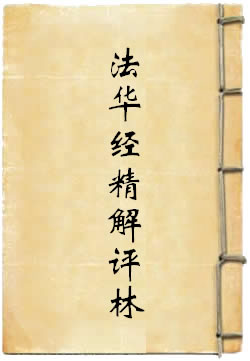 法华经精解评林